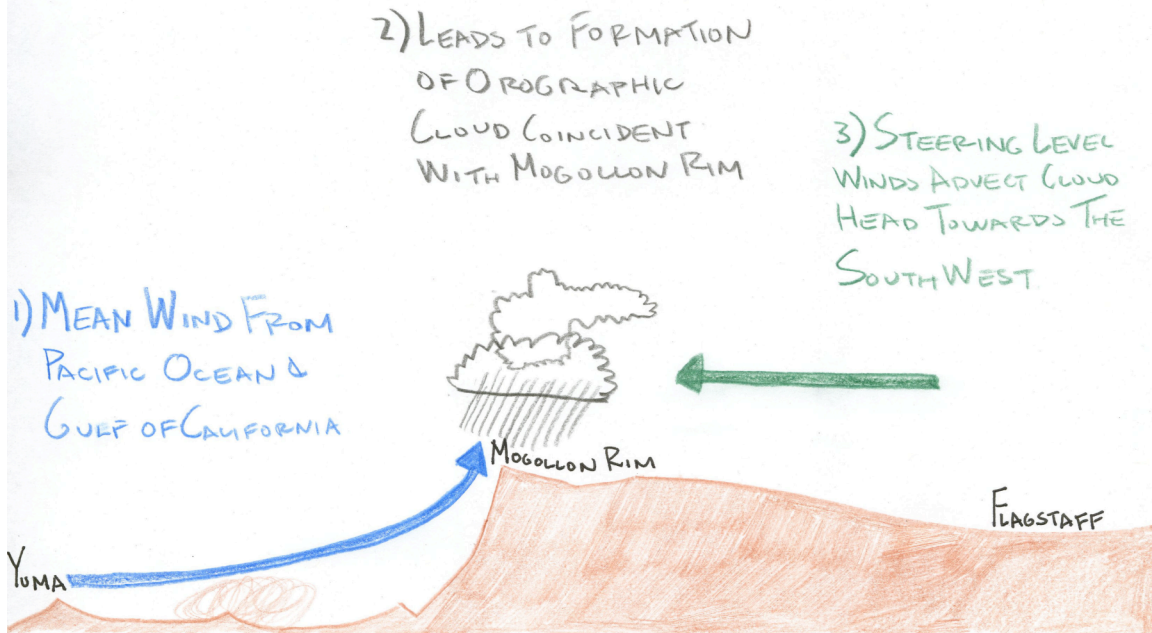 2) LEADS TO FORMATION
OF OROGRAPHIC
CLOUD COINCIDENT
WITH MOGOLLON RIM
3) STEERING LEVEL
WINDS ADVECT CLOUD
HEAD TOWARDS THE
SOUTHWEST
1) MEAN WIND FROM
PACIFIC OCEAN &
GULF OF CALIFORNIA
MOGOLLON RIM
FLAGSTAFF
YUMA